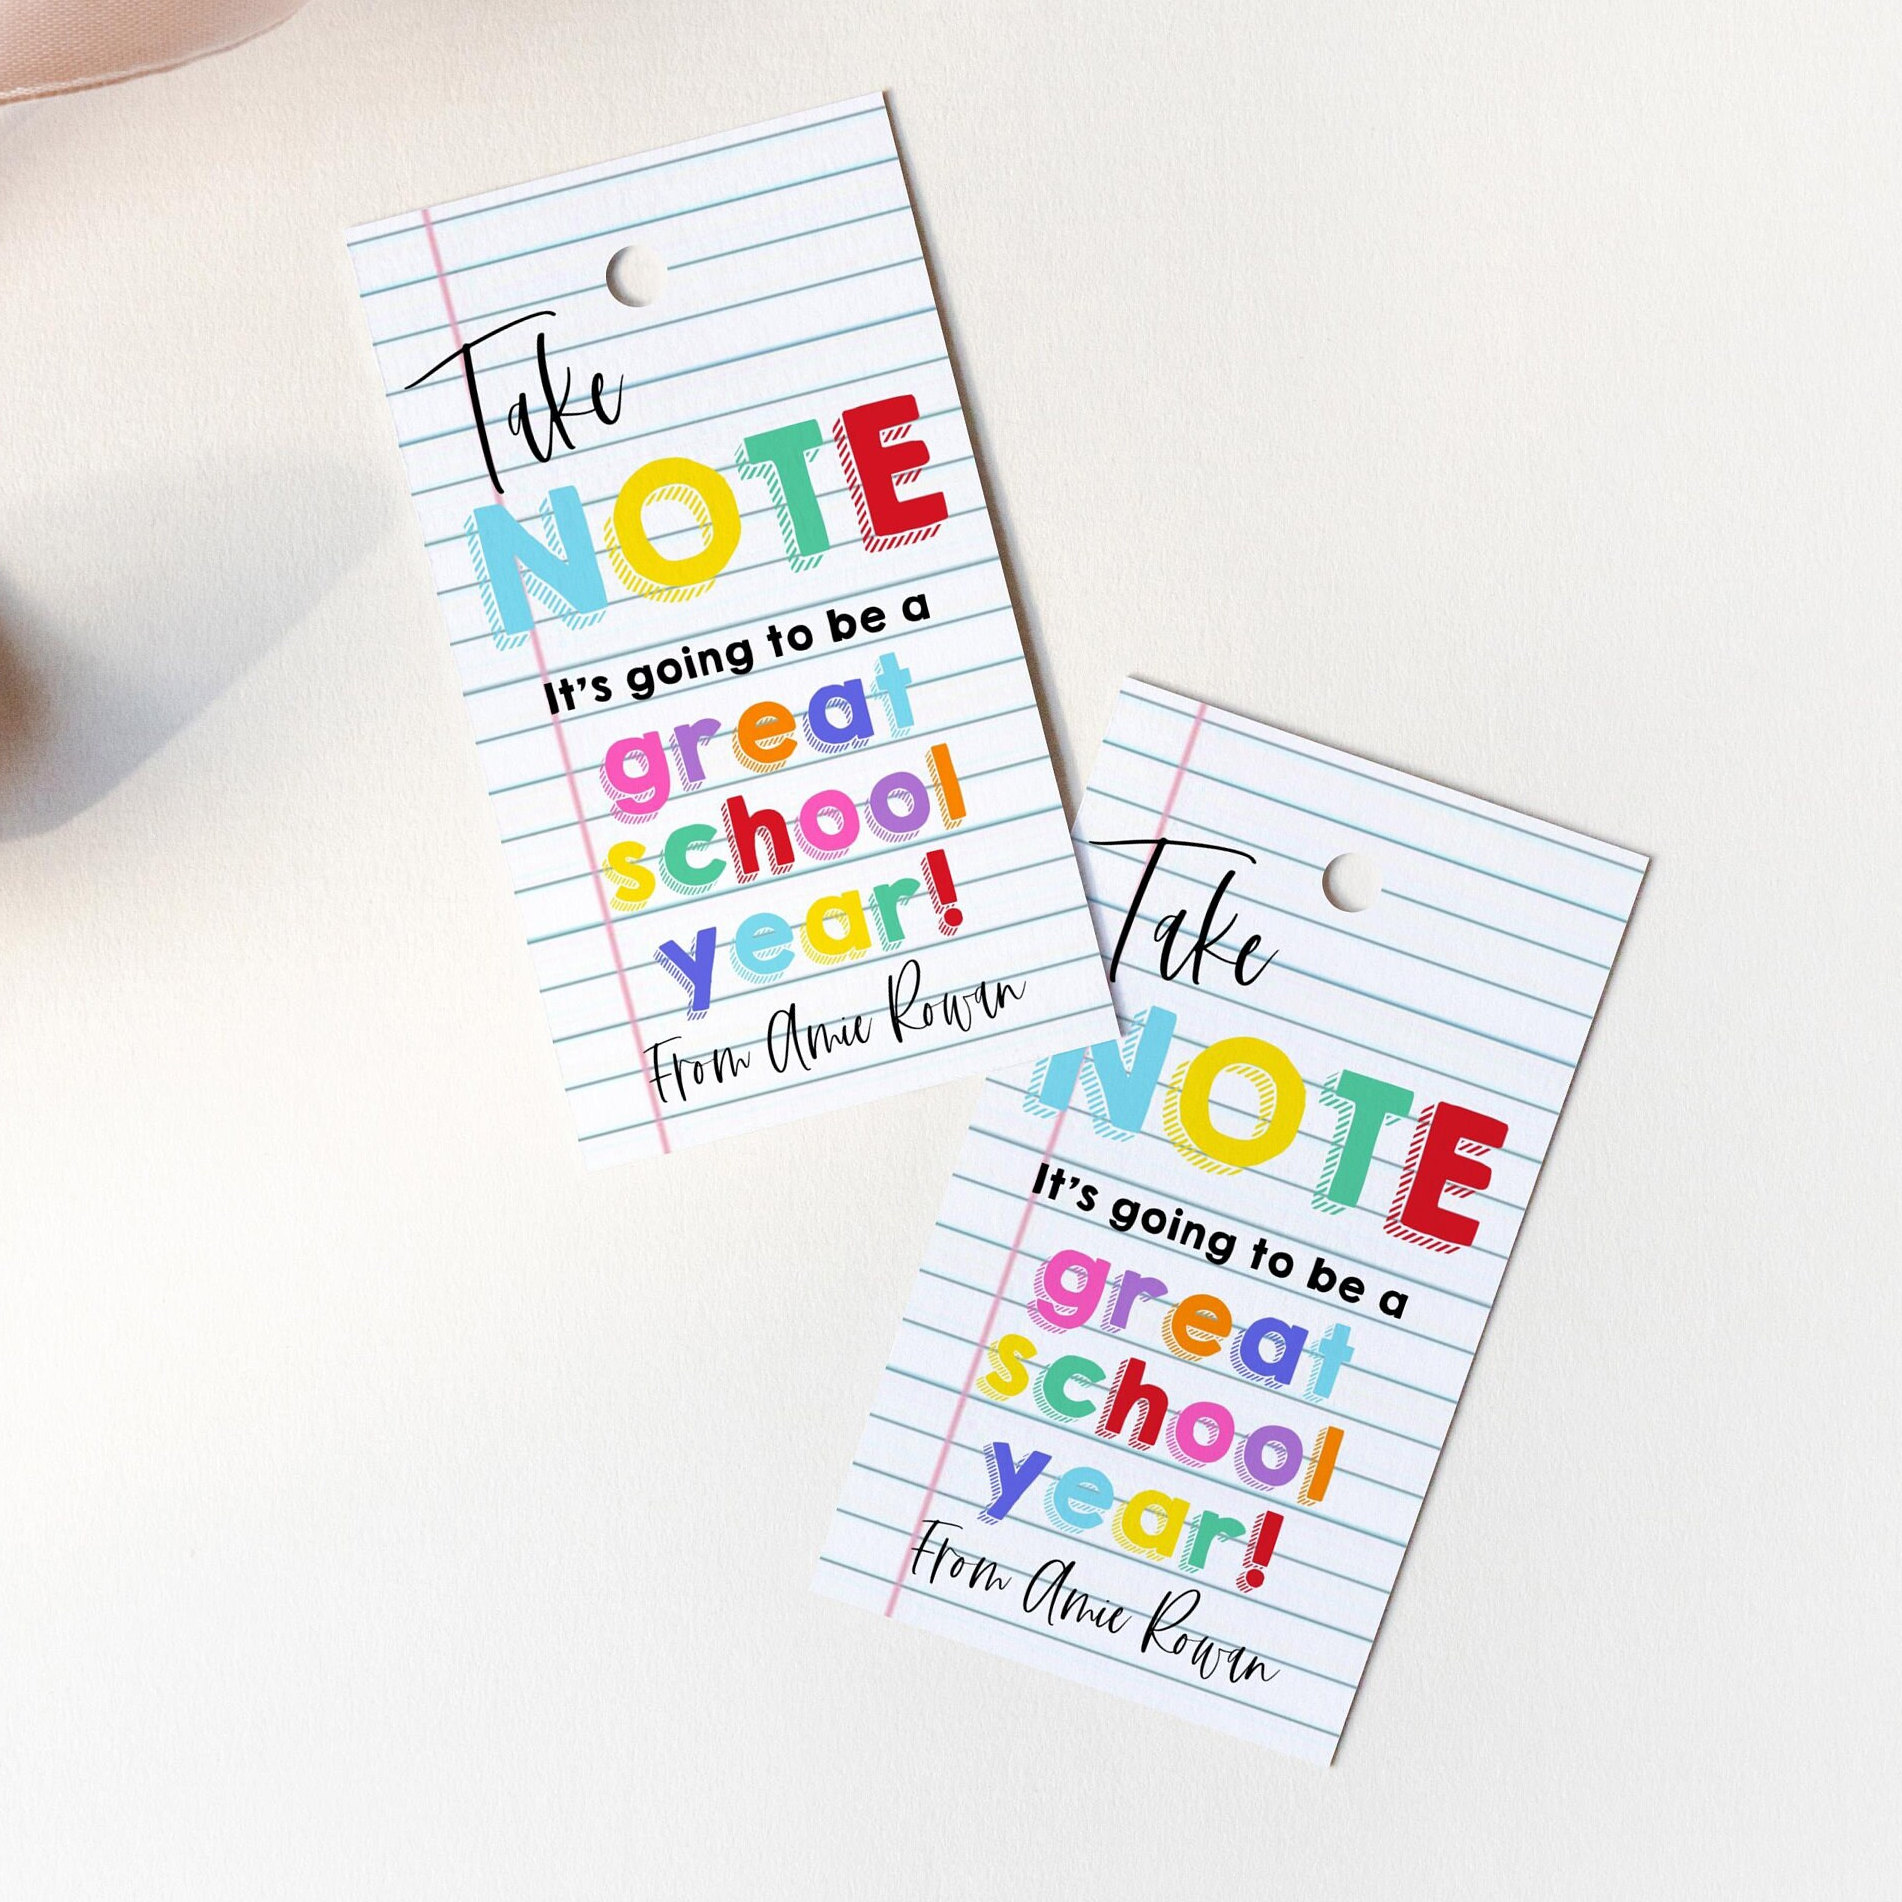 Take
NOTE
It's going to be a
great
school
year!
From Amie Rowan
Take
NOTE
It's going to be a
great
school
year!
From Amie Rowan